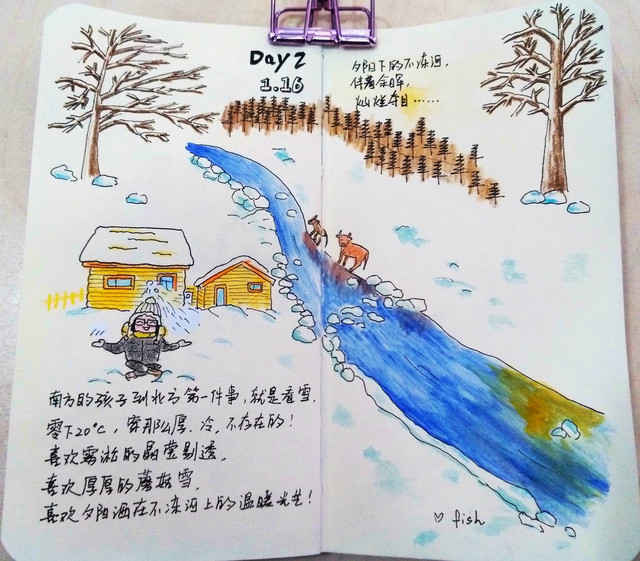 Day 2
1.16
夕阳下的不冻河,
伴着余晖,
灿烂夺目……
南方的孩子到北方第一件事,就是看雪.
零下20°C,穿那么厚.冷,不存在的!
喜欢雾淞的晶莹剔透,
喜欢厚厚的蘑菇雪.
喜欢夕阳洒在不冻河上的温暖光芒!
♡ fish